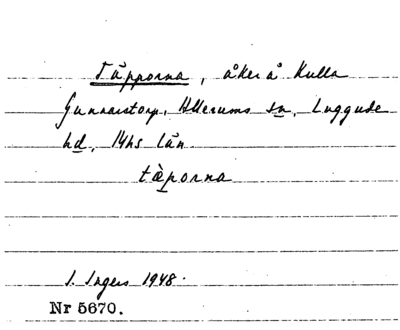 Täpporna, åker å Kulla
Gunnarstorp, Allerums sn, Luggude
hd, Mhs län
tä̀porna
I. Ingers 1948.
Nr 5670.